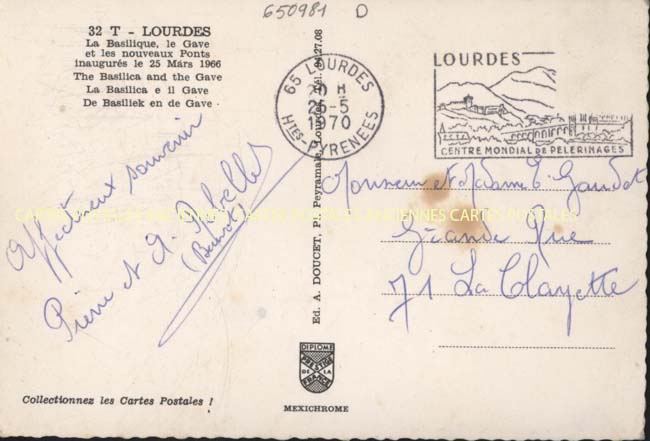 650981 D
32 T - LOURDES
La Basilique, le Gave
et les nouveaux Ponts
inaugurés le 25 Mars 1966
The Basilica and the Gave
La Basilica e il Gave
De Basiliek en de Gave
65 LOURDES
20 H
25-5
1970
Htes-PYRENEES
LOURDES
CENTRE MONDIAL DE PELERINAGES
Affectueux souvenir
Pierre et
Monsieur et Madame E. Gaudet
Grande Rue
71 La Clayette
CARTES POSTALES ANCIENNES CARTES POSTALES
Ed. A. DOUCET, Pl. Peyramale, Lourdes, Tél. 27.08
DIPLOME
PRESTIGE
DE LA
FRANCE
MEXICHROME
Collectionnez les Cartes Postales !